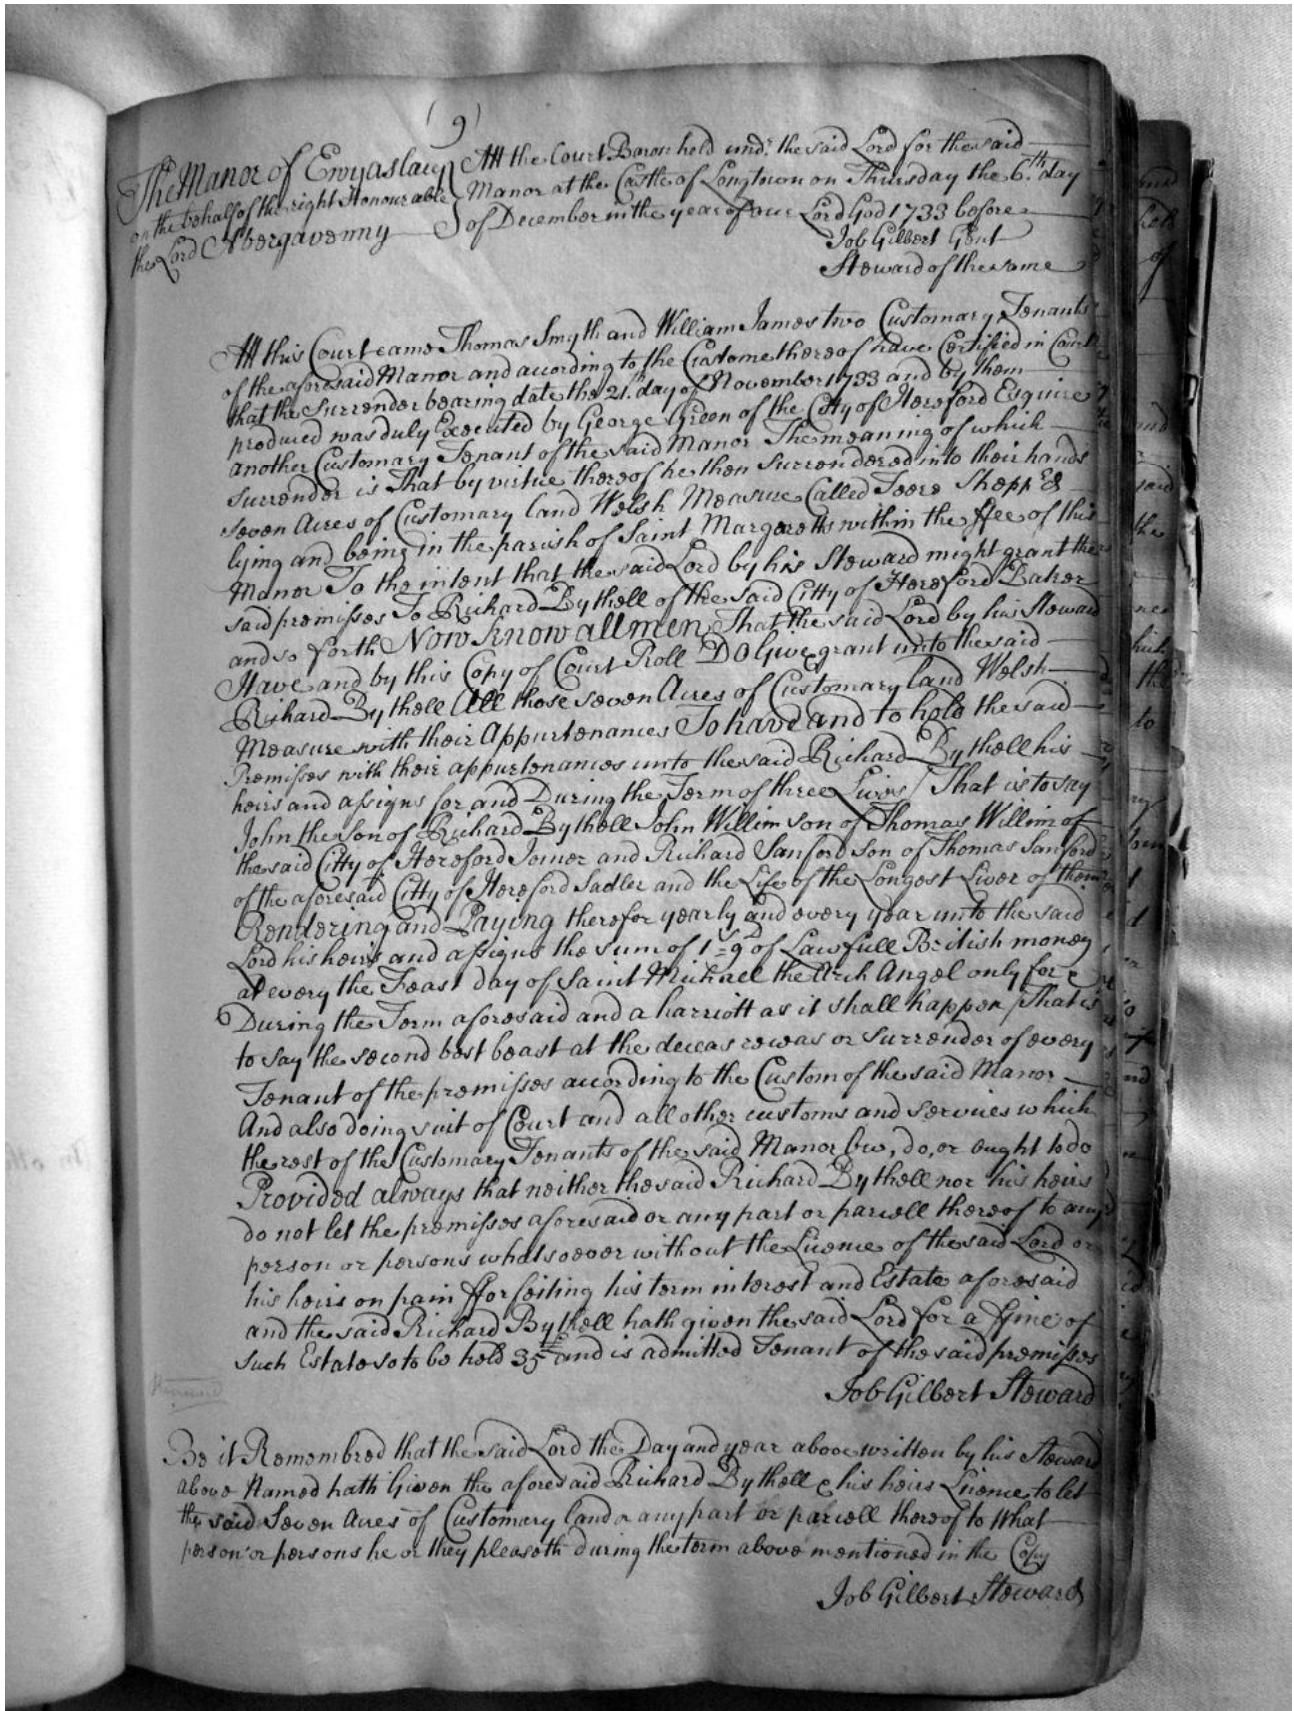 (9)
The Manor of Ewyaslacy
on the behalf of the right Honourable
the Lord Abergavenny
Att the Court Baron held undr. the said Lord for the said
Manor at the Castle of Longtown on Thursday the 6th day
of December in the year of our Lord God 1733 before
Job Gilbert Gent
Steward of the same
Att this Court came Thomas Smyth and William James two Customary Tenants
of the aforesaid Manor and according to the Custome thereof have Certified in Court
that the Surrender bearing date the 21th day of November 1733 and by them
produced was duly Executed by George Green of the Citty of Hereford Esquire
another Customary Tenant of the said Manor The meaning of which
Surrender is That by virtue thereof he then Surrendered into their hands
Seven Acres of Customary land Welsh Measure Called
lying and being in the parish of Saint Margeretts within the ffee of this
Manor To the intent that the said Lord by his Steward might grant the
said premisses To Richard Bythell of the said Citty of Hereford Baker
and so forth Now know all men That the said Lord by his Steward
Have and by this Copy of Court Roll Do Give grant unto the said
Richard Bythell All those seven Acres of Customary land Welsh
Measure with their Appurtenances To have and to hold the said
Premisses with their appurtenances unto the said Richard Bythell his
heirs and assigns for and During the Term of three Lives / That is to say
John the Son of Richard Bythell John Willim son of Thomas Willim of
the said Citty of Hereford Joiner and Richard Sanford son of Thomas Sanford
of the aforesaid Citty of Hereford Sadler and the Life of the Longest Liver of them
Rendering and Paying therefor yearly and every year unto the said
Lord his heirs and assigns the sum of 1s=9d of Lawfull British money
at every the Feast day of Saint Michael the Arch Angel only for
During the Term aforesaid and a harriott as it shall happen / That is
to say the second best beast at the or surrender of every
Tenant of the premisses according to the Custom of the said Manor
And also doing suit of Court and all other customs and services which
the rest of the Customary Tenants of the said Manor do, or ought to do
Provided always that neither the said Richard Bythell nor his heirs
do not let the premisses aforesaid or any part or parcell thereof to any
person or persons whatsoever without the Licence of the said Lord or
his heirs on pain fforfeiting his term interest and Estate aforesaid
and the said Richard Bythell hath given the said Lord for a ffine of
such Estate so to be held 35£ and is admitted Tenant of the said premisses
Job Gilbert Steward
Be it Remembred that the said Lord the Day and year above written by his Steward
above Named hath Given the aforesaid Richard Bythell & his heirs Licence to let
the said Seven Acres of Customary land or any part or parcell thereof to What
person or persons he or they pleaseth during the term above mentioned in the Copy
Job Gilbert Steward